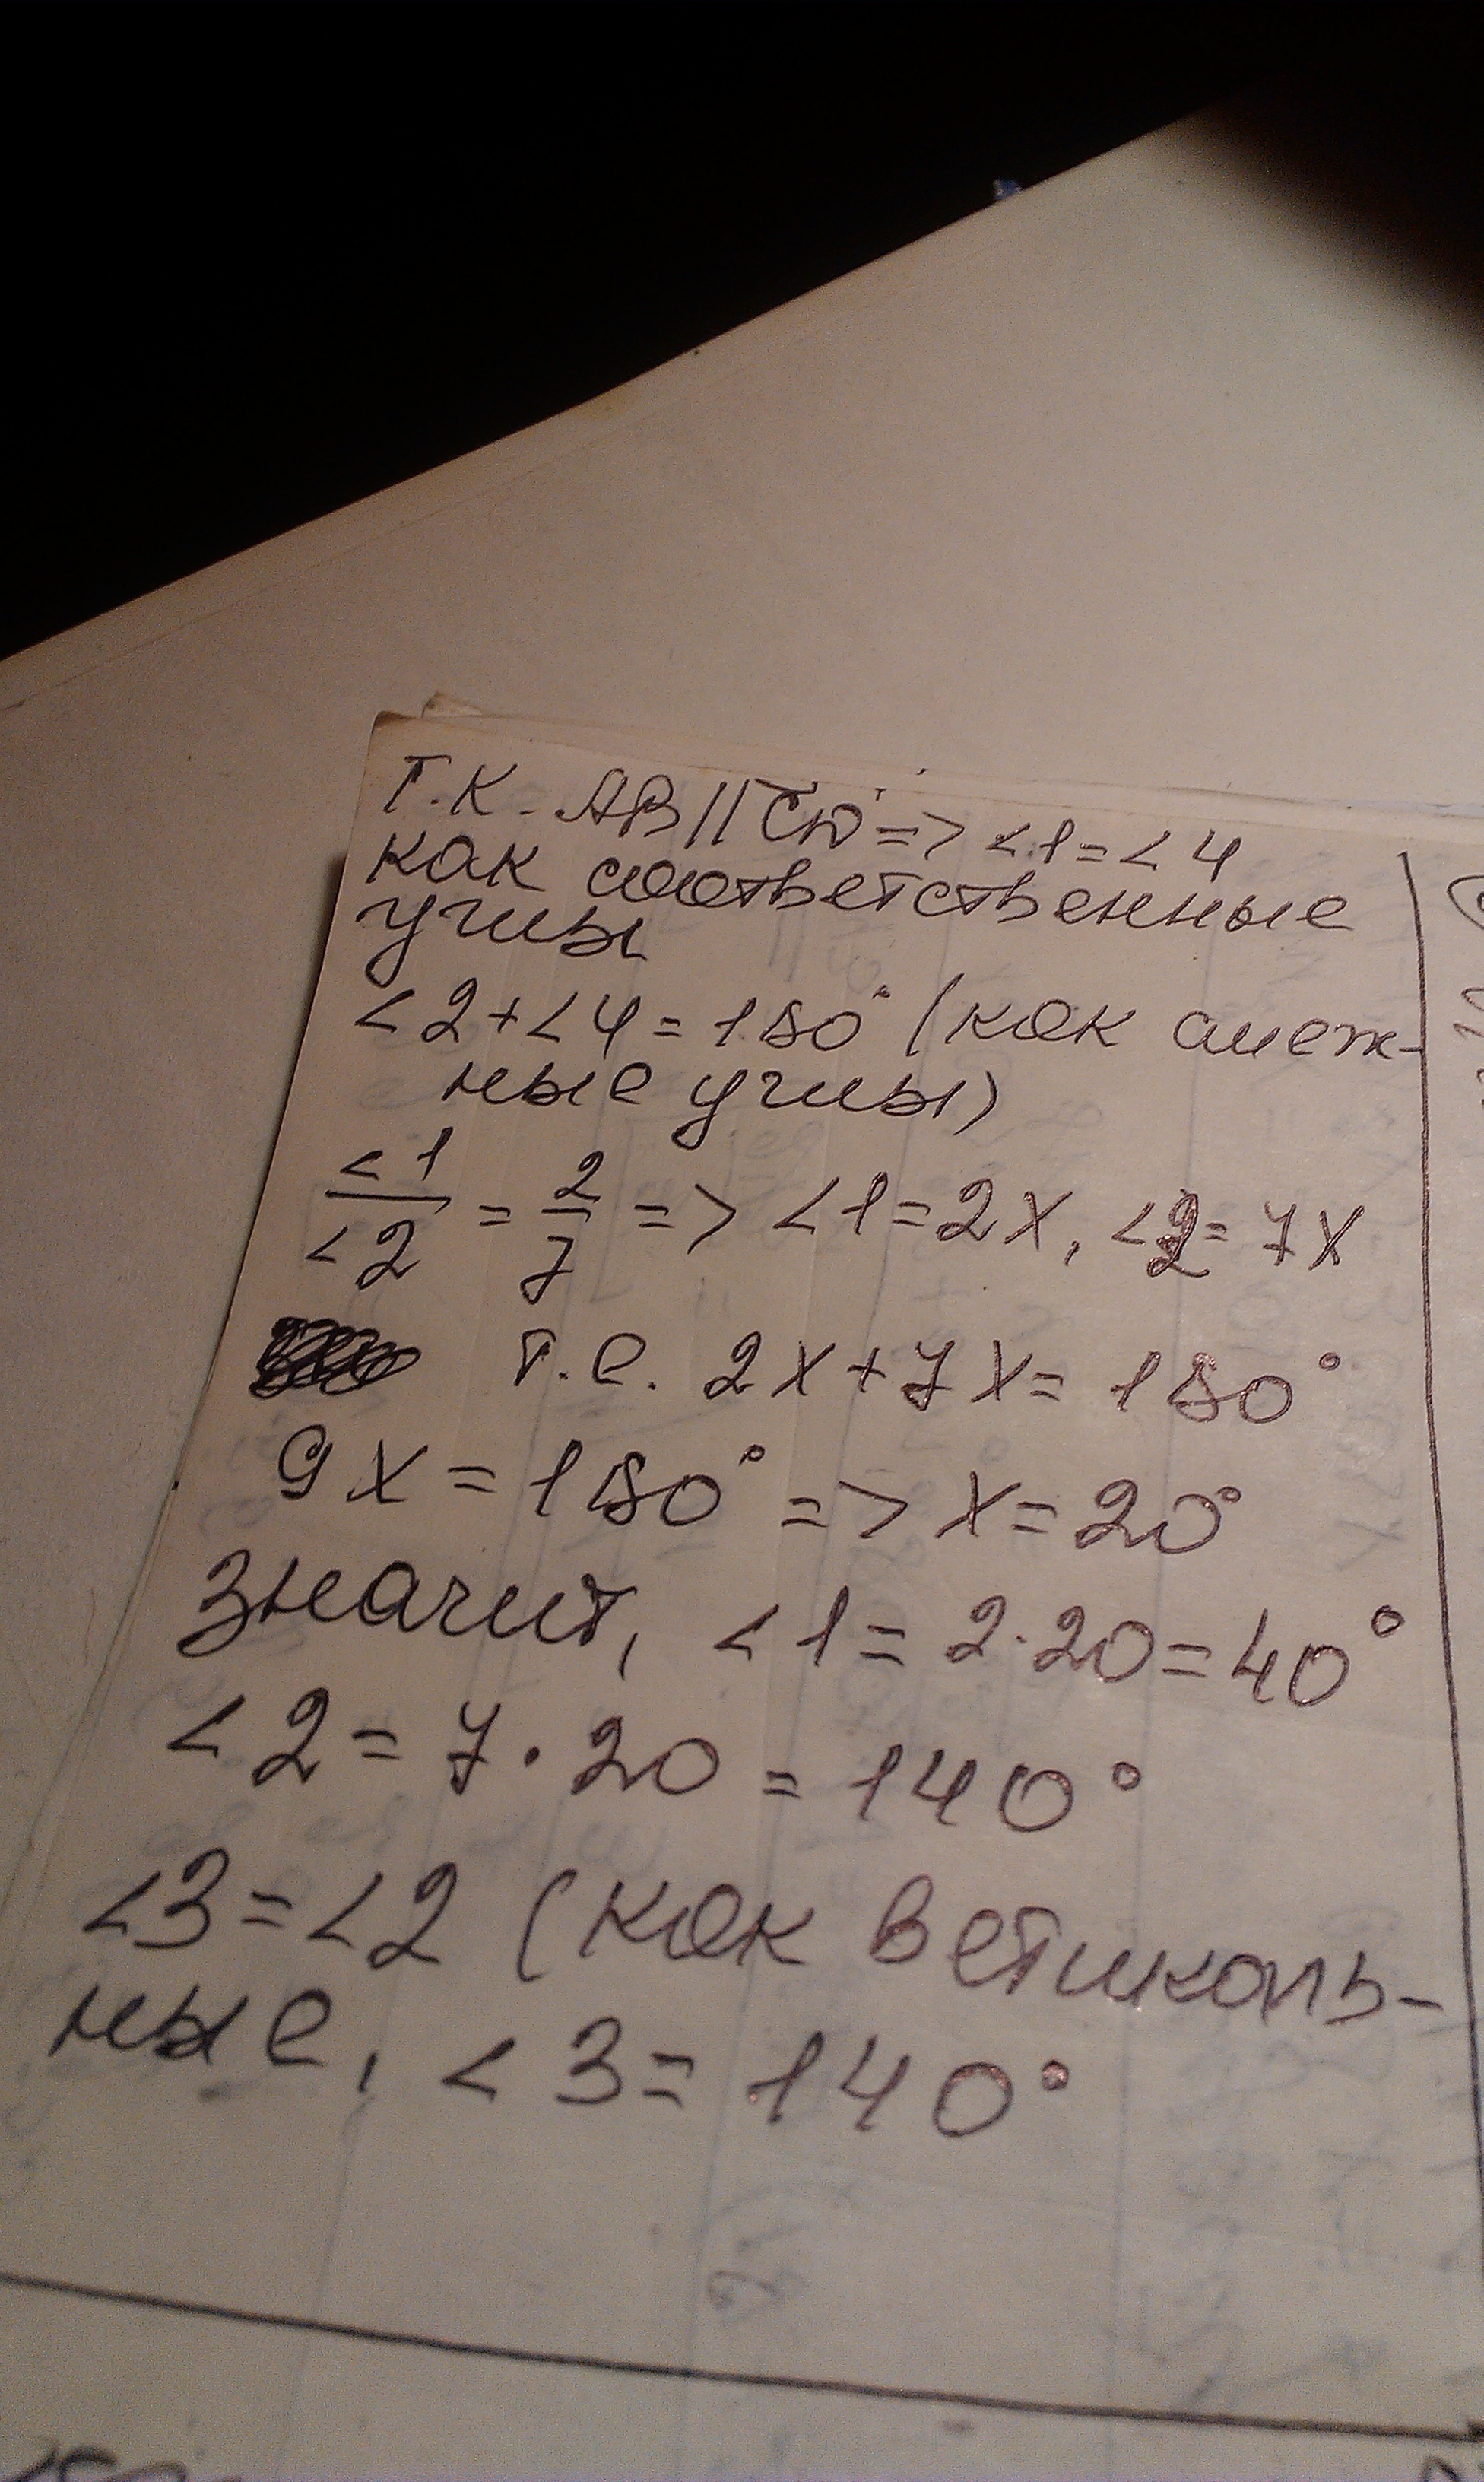 Т.К. AB||CD => <1=<4
как соответственные
углы
<2+<4=180° (как смеж-
ные углы)
<1/<2 = 2/7 => <1=2x, <2=7x
т.е. 2x+7x=180°
9x=180° => x=20°
Значит, <1=2·20=40°
<2=7·20=140°
<3=<2 (как ветикаль-
ные, <3=140°